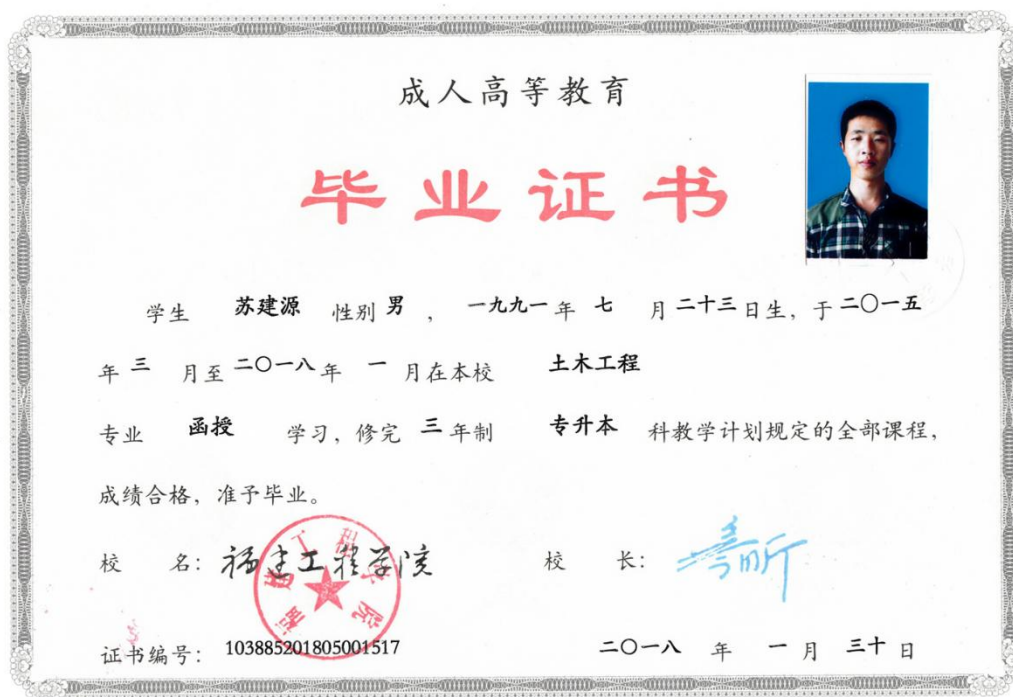 成人高等教育
毕业证书
学生 苏建源 性别 男 , 一九九一 年 七 月 二十三 日生, 于 二〇一五
年 三 月至 二〇一八 年 一 月在本校 土木工程
专业 函授 学习, 修完 三 年制 专升本 科教学计划规定的全部课程,
成绩合格, 准予毕业。
校 名: 福建工程学院 校 长:
福建工程学院
证书编号: 103885201805001517 二〇一八 年 一 月 三十 日